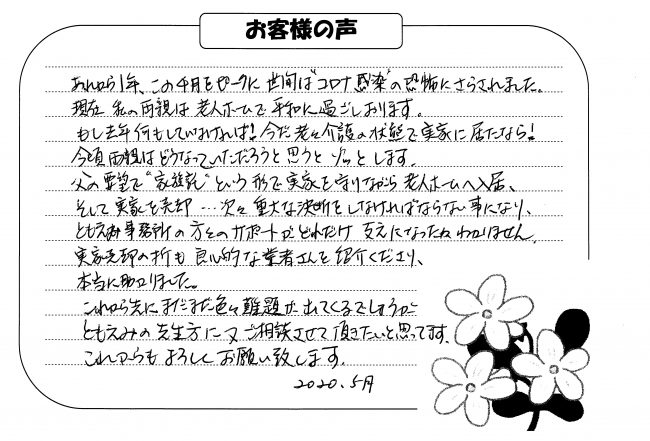 お客様の声
あれから1年、この4月をピークに世間は"コロナ感染"の恐怖にさらされました。
現在 私の両親は老人ホームで平和に過ごしおります。
もし去年何もしていなければ!今だ老々介護の状態で実家に居たなら!
今頃両親はどうなっていただろうと思うとゾッとします。
父の要望で"家族信託"という形で実家を守りながら老人ホームへ入居、
そして実家を売却…次々重大な決断をしなければならない事になり、
ともえみ事務所の方々のサポートがどれだけ支えになったかわかりません。
実家売却の折も良心的な業者さんを紹介くださり、
本当に助かりました。
これから先にまだまだ色々難題が出てくるでしょうが
ともえみの先生方に又ご相談させて頂きたいと思ってます。
これからもよろしくお願い致します。
2020.5月